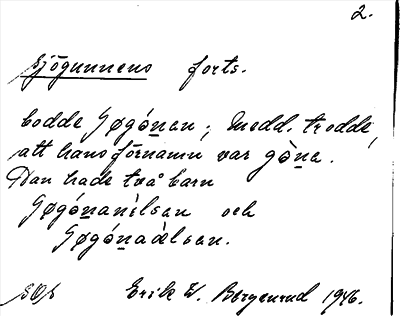 2.
Sjögunnens forts.
bodde Søgónan; Medd. trodde,
att hans förnamn var gòna.
Dan hade två barn
Søgónanìlsan och
Søgónaàlsan.
SOÄ Erik W. Bergenrud 1946.